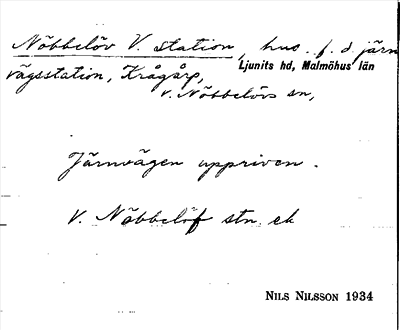 Nöbbelöv V. station, hus. f. d. järn
vägsstation, Krågarp, Ljunits hd, Malmöhus län
V. Nöbbelövs sn,
Järnvägen uppriven.
V. Nöbbelöf stn. ek
NILS NILSSON 1934